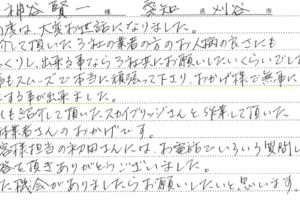 神谷賢一 愛知 県 刈谷 市
度は、大変お世話になりました。
介して頂いた3社の業者の方のお人柄の良さにも
っくりし、出来る事なら3社共にお願いしたいくらいでした
事もスムーズで本当に頑張って下さり、おかげ様で無事に
する事が出来ました。
も紹介して頂いたスカイブリッジさんと作業して頂いた
業者さんのおかげです。
客様担当の初田さんには、お電話でいろいろ質問し
答を頂きありがとうございました。
た機会がありましたらお願いしたいと思います。